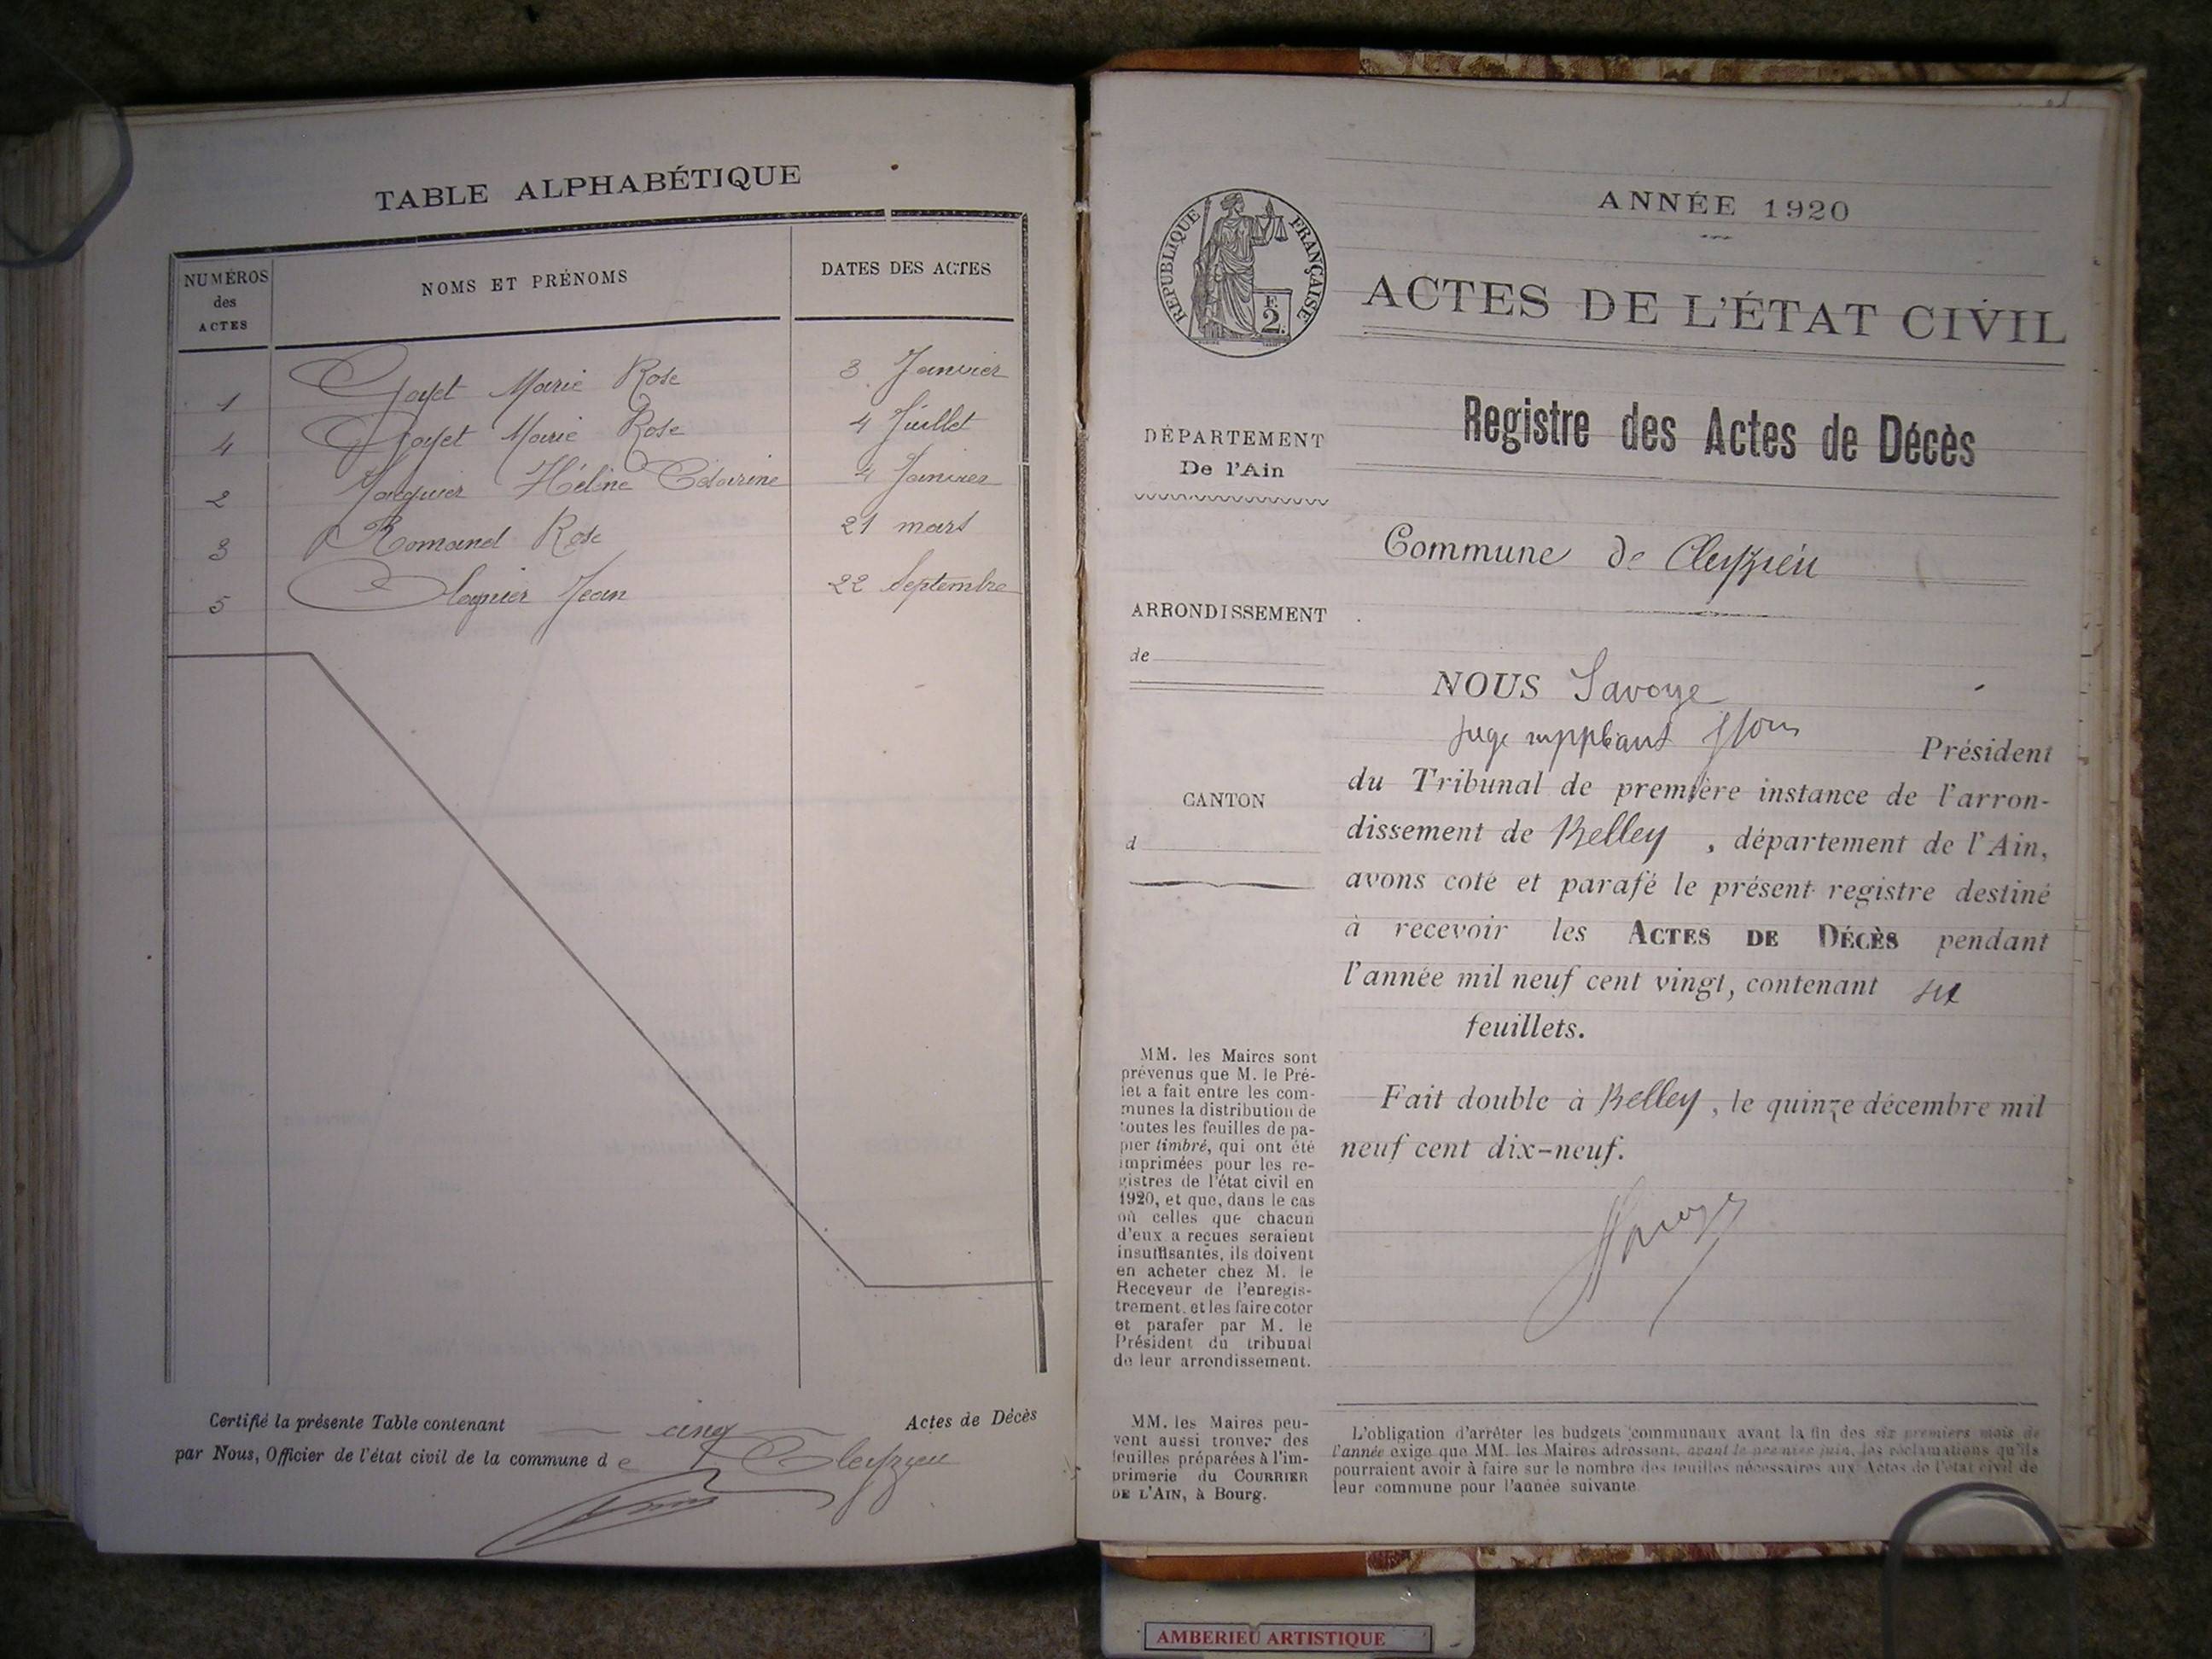 TABLE ALPHABÉTIQUE
NUMÉROS
des
ACTES
NOMS ET PRÉNOMS
DATES DES ACTES
1 Gayet Marie Rose 3 Janvier
4 Gayet Marie Rose 4 Juillet
2 Jacquier Hélène Césarine 4 Janvier
3 Romand Rose 21 mars
5 Jean 22 Septembre
Certifié la présente Table contenant cinq Actes de Décès
par Nous, Officier de l'état civil de la commune de Cleyzieu
RÉPUBLIQUE FRANÇAISE
F.
2.
ANNÉE 1920
ACTES DE L'ÉTAT CIVIL
Registre des Actes de Décès
DÉPARTEMENT
De l'Ain
Commune de Cleyzieu
ARRONDISSEMENT
de
CANTON
d
NOUS Savoye
Juge suppléant Président
du Tribunal de première instance de l'arron-
dissement de Belley, département de l'Ain,
avons coté et parafé le présent registre destiné
à recevoir les ACTES DE DÉCÈS pendant
l'année mil neuf cent vingt, contenant six
feuillets.
Fait double à Belley, le quinze décembre mil
neuf cent dix-neuf.
MM. les Maires sont
prévenus que M. le Pré-
fet a fait entre les com-
munes la distribution de
toutes les feuilles de pa-
pier timbré, qui ont été
imprimées pour les re-
gistres de l'état civil en
1920, et que, dans le cas
où celles que chacun
d'eux a reçues seraient
insuffisantes, ils doivent
en acheter chez M. le
Receveur de l'enregis-
trement, et les faire coter
et parafer par M. le
Président du tribunal
de leur arrondissement.
MM. les Maires peu-
vent aussi trouver des
feuilles préparées à l'im-
primerie du COURRIER
DE L'AIN, à Bourg.
L'obligation d'arrêter les budgets communaux avant la fin des six premiers mois de
l'année exige que MM. les Maires adressent, avant le premier juin, les réclamations qu'ils
pourraient avoir à faire sur le nombre des feuilles nécessaires aux Actes de l'état civil de
leur commune pour l'année suivante
AMBERIEU ARTISTIQUE